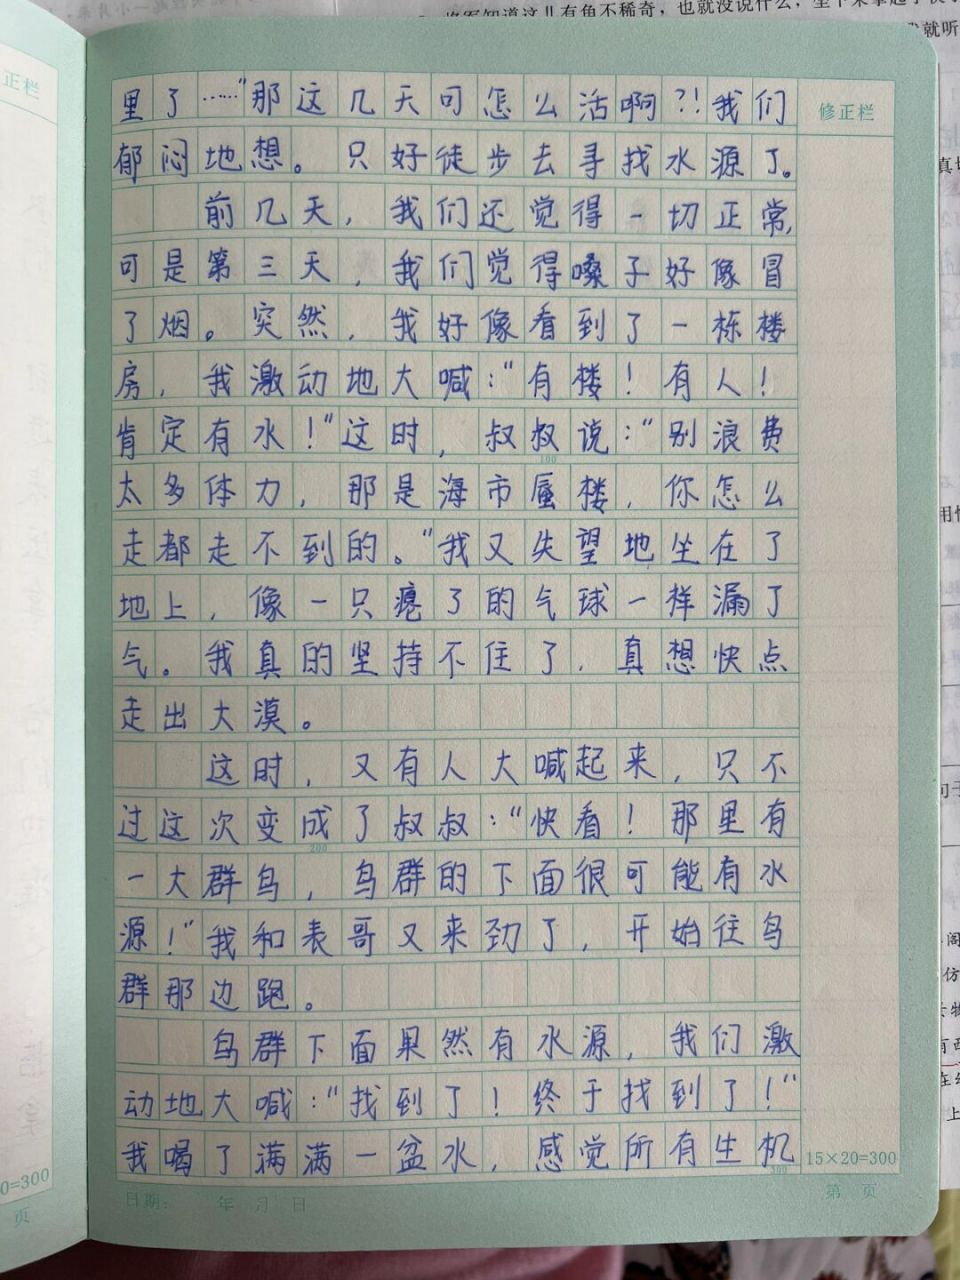 将军知道这儿有鱼不稀奇，也就没说什么，坐下来拿起
就听
正栏
修正栏
里了……"那这几天可怎么活啊?!我们
郁闷地想。只好徒步去寻找水源了。
前几天，我们还觉得一切正常，
可是第三天，我们觉得嗓子好像冒
了烟。突然，我好像看到了一栋楼
房，我激动地大喊："有楼！有人！
肯定有水！"这时，叔叔说："别浪费
100
太多体力，那是海市蜃楼，你怎么
走都走不到的。"我又失望地坐在了
地上，像一只瘪了的气球一样漏了
气。我真的坚持不住了，真想快点
走出大漠。
这时，又有人大喊起来，只不
过这次变成了叔叔："快看！那里有
200
一大群鸟，鸟群的下面很可能有水
源！"我和表哥又来劲了，开始往鸟
群那边跑。
鸟群下面果然有水源，我们激
动地大喊："找到了！终于找到了！"
我喝了满满一盆水，感觉所有生机
300
15×20=300
日期： 年 月 日
第 页
0=300
页